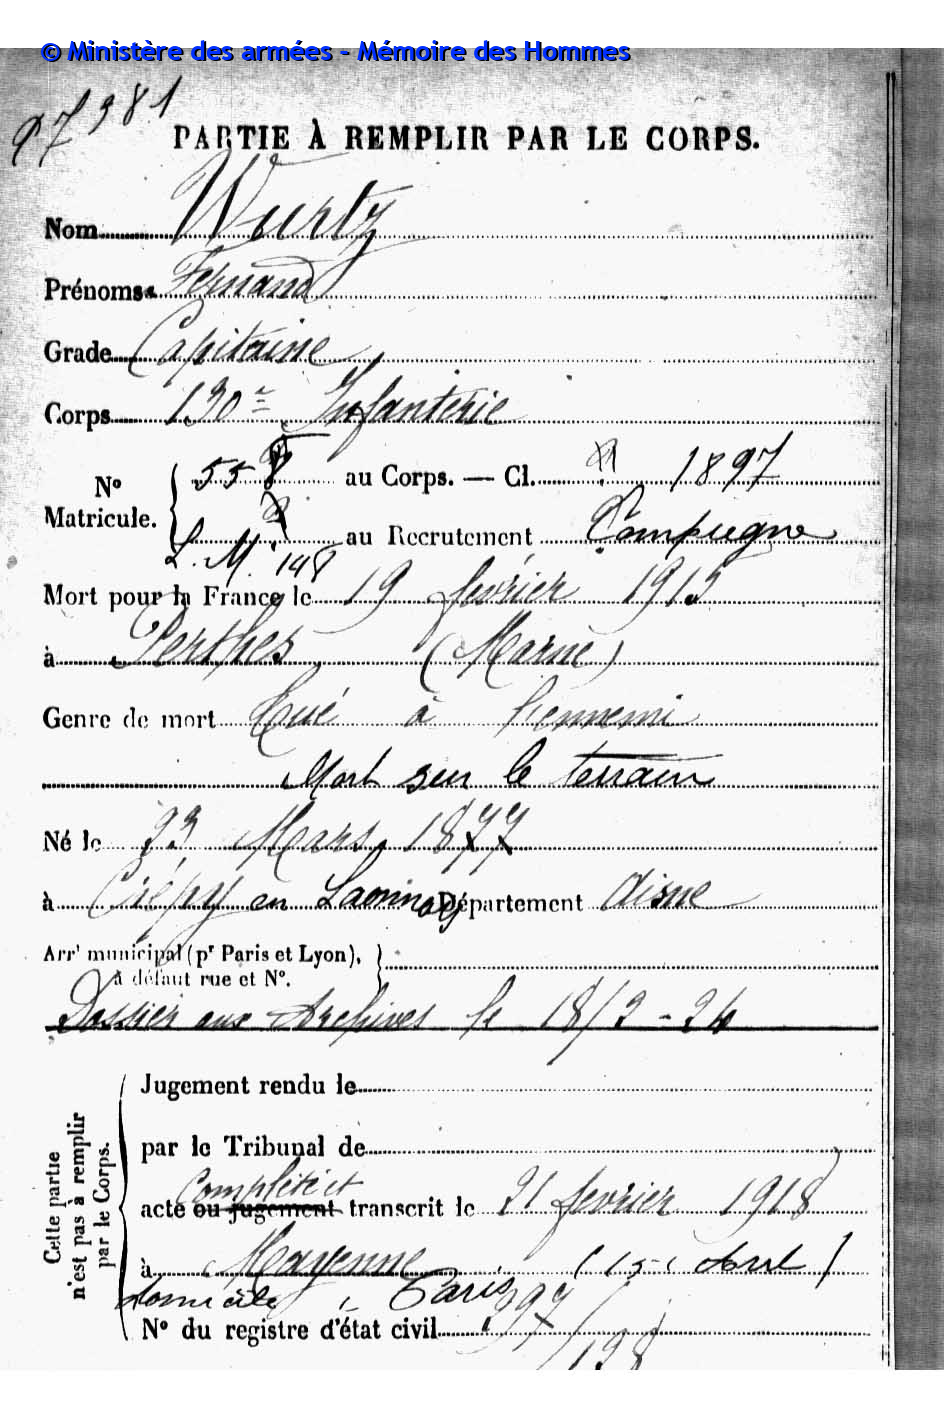 © Ministère des armées - Mémoire des Hommes
PARTIE À REMPLIR PAR LE CORPS.
Nom Wurtz
Prénoms Fernand
Grade Capitaine
Corps 130e Infanterie
No Matricule. 558 au Corps. — Cl. 1897
L. M. 148 au Recrutement Compiegne
Mort pour la France le 19 février 1915
à Perthes (Marne)
Genre de mort Tué à l'ennemi
Mort sur le terrain
Né le 23 Mars 1877
à Crépy en Laonnois Département Aisne
Arrt municipal (pr Paris et Lyon),
à défaut rue et No.
Dossier aux Archives le 18/2-26
Cette partie n'est pas à remplir par le Corps.
Jugement rendu le
par le Tribunal de
complété et
acte ou jugement transcrit le 21 fevrier 1918
à Mayenne
domicile Paris
No du registre d'état civil 397